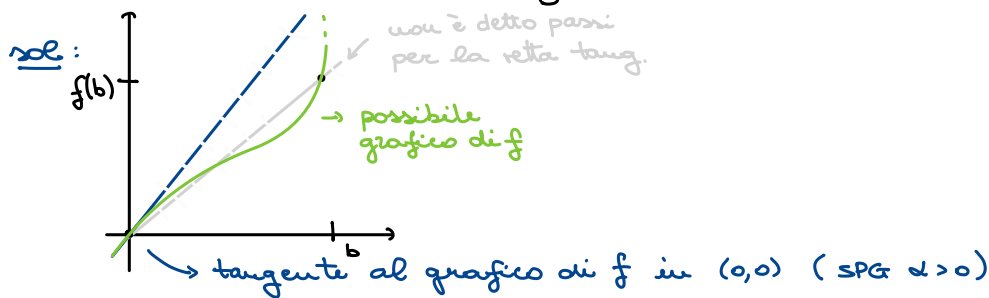 non è detto passi
sol:
per la retta tang.
f(b)
→ possibile
grafico di f
b
→ tangente al grafico di f in (0,0) ( SPG α>0)